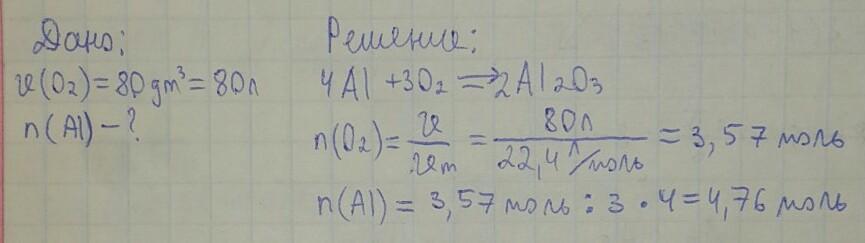 Дано:
V(O₂)=80 дм³=80л
n(Al) – ?
Решение:
4Al + 3O₂ ⟹ 2Al₂O₃
n(O₂) = V/Vm = 80л/22,4 л/моль = 3,57 моль
n(Al) = 3,57 моль : 3 · 4 = 4,76 моль